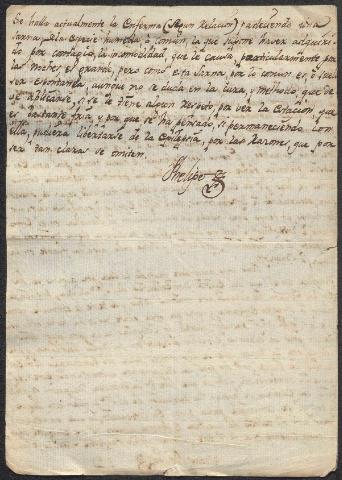 Se halla actualmente la Enferma (segun Relacion) padeciendo una
sarna de la especie humeda, ó comun, la que supone haver adquiri-
do por contagio, la incomodidad, que le causa, particularmente por
las noches, es grande, pero como esta sarna, por lo comun es, ó suele
ser espontanea, aunque no se duda en la cura, y methodo, que de-
be aplicarse, se le tiene algun respeto por ver la Estacion, que
es bastante fria, y por que se ha pensado, si permaneciendo con
ella, pudiera libertarse de la Epilepsia, por las Razones, que por
ser tan claras se omiten.
Phelipe